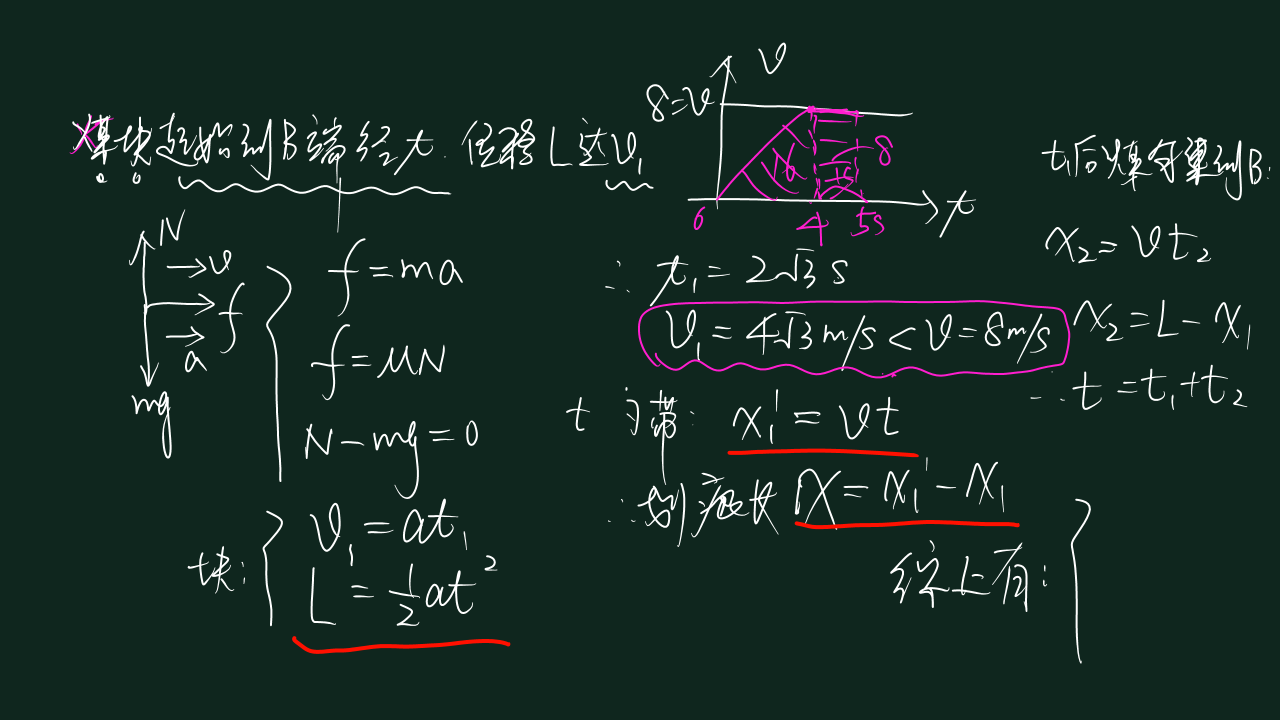 煤块起始到B端经t. 位移L达v₁
N
v
f
a
mg
f=ma
f=μN
N-mg=0
块:
v₁=at₁
L=½at²
v
8=v
16
1s
8
0
4
5s
t
∴ t₁=2√3 s
v₁=4√3m/s<v=8m/s
t 习带: x₁'=vt
∴划痕长 ΔX=x₁'-x₁
t₁后煤匀速到B:
x₂=vt₂
x₂=L-x₁
∴ t=t₁+t₂
综上有: